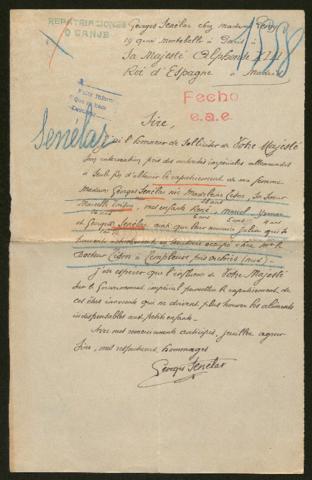 REPATRIACIONES
O CANJE
Georges Sénélar chez madame
19 quai Montebello à Paris à
Sa Majesté Alphonse XIII
Roi d'Espagne à Madrid
158
Fecho
e.a.e.
Sénélar
Sire,
J'ai l'honneur de solliciter de Votre Majesté
Son intervention près des autorités impériales allemandes
à seule fin d'obtenir le rapatriement de ma femme
Madame Georges Sénélar née Madeleine, sa Soeur
Marcelle, mes enfants René, Marcel,
et Georges Sénélar ainsi que leur
en territoire occupé chez Mr le
Docteur à Templeuve, près Orchies (nord).
J'ose espérer que l'influence de Votre Majesté
sur le Gouvernement impérial permettra le rapatriement de
ces êtres innocents qui ne doivent plus trouver les aliments
indispensables aux petits enfants.
Avec mes remerciements anticipés, veuillez agréer
Sire, mes respectueux hommages
Georges Sénélar